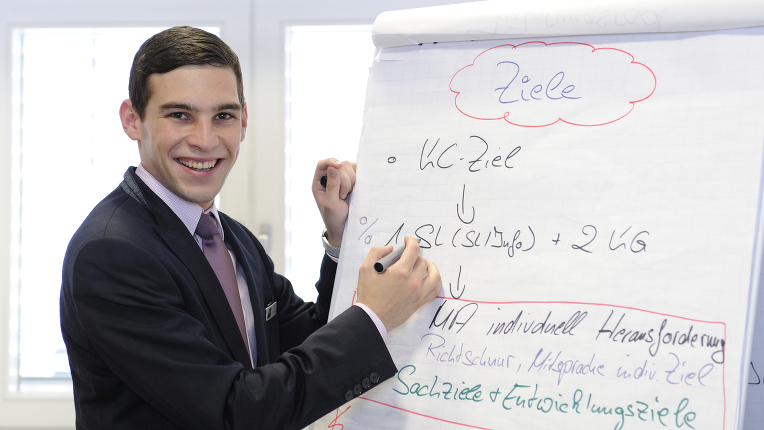 Ziele
• KC-Ziel
↓
% 1 SL (SL Info) + 2 KG
↓
MA indivduell Herausforderung
Richtschnur, Mitsprache indiv. Ziel
Sachziele + Entwicklungsziele